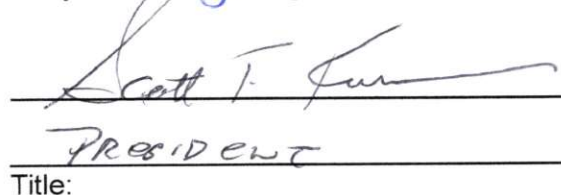 Scott T.
PRESIDENT
Title: